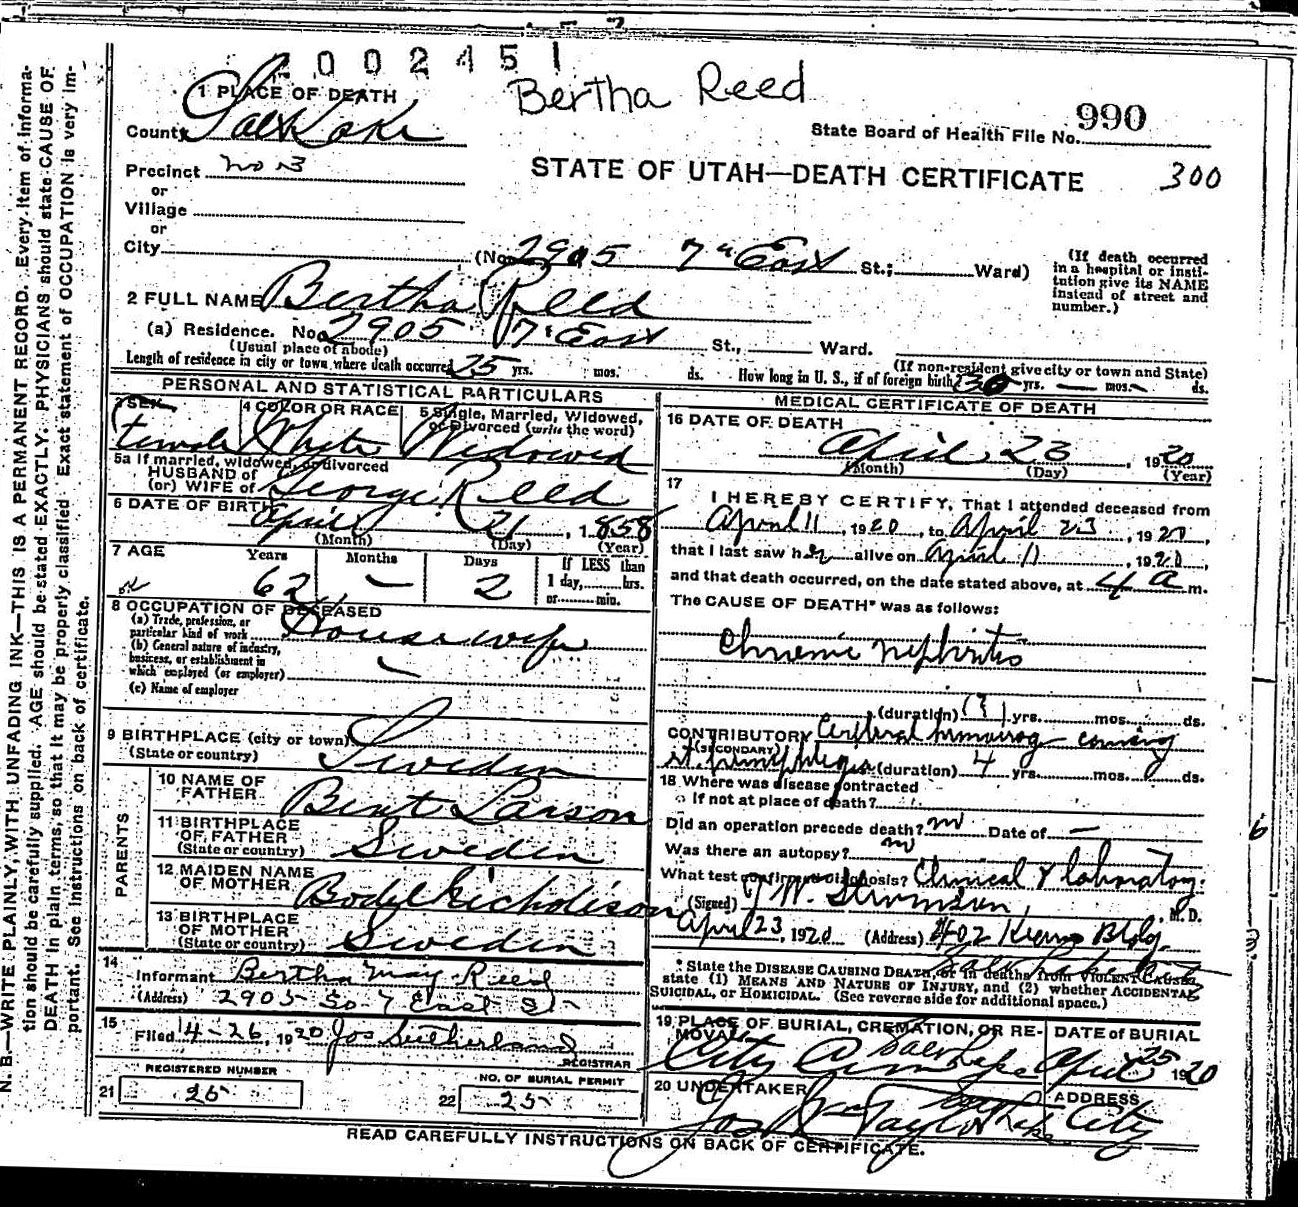 002451
Bertha Reed
1 PLACE OF DEATH
County Salt Lake
State Board of Health File No. 990
Precinct No 3
STATE OF UTAH—DEATH CERTIFICATE
300
or
Village
or
City
(No. 2905 7th East St.; Ward)
(If death occurred in a hospital or institution give its NAME instead of street and number.)
2 FULL NAME Bertha Reed
(a) Residence. No. 2905 7th East St., Ward.
(Usual place of abode)
(If non-resident give city or town and State)
Length of residence in city or town where death occurred 25 yrs. mos. ds. How long in U. S., if of foreign birth? 30 yrs. — mos. ds.
PERSONAL AND STATISTICAL PARTICULARS
3 SEX Female
4 COLOR OR RACE White
5 Single, Married, Widowed, or Divorced (write the word) Widowed
5a If married, widowed, or divorced
HUSBAND of
(or) WIFE of George Reed
6 DATE OF BIRTH April 21, 1858
(Month) (Day) (Year)
7 AGE Years Months Days If LESS than
62 — 2 1 day, hrs.
or min.
8 OCCUPATION OF DECEASED
(a) Trade, profession, or particular kind of work Housewife
(b) General nature of industry, business, or establishment in which employed (or employer) —
(c) Name of employer
9 BIRTHPLACE (city or town)
(State or country) Sweden
PARENTS
10 NAME OF FATHER Bent Larson
11 BIRTHPLACE OF FATHER (State or country) Sweden
12 MAIDEN NAME OF MOTHER Bodel Nicholison
13 BIRTHPLACE OF MOTHER (State or country) Sweden
14
Informant Bertha May Reed
(Address) 2905 So 7 East St
15
Filed 4-26, 1920 Jos Sutherland
REGISTRAR
REGISTERED NUMBER
21 25
NO. OF BURIAL PERMIT
22 25
MEDICAL CERTIFICATE OF DEATH
16 DATE OF DEATH
April 23, 1920
(Month) (Day) (Year)
17
I HEREBY CERTIFY, That I attended deceased from
April 11, 1920, to April 23, 1920,
that I last saw her alive on April 11, 1920,
and that death occurred, on the date stated above, at 4 a m.
The CAUSE OF DEATH* was as follows:
Chronic Nephritis
(duration) (?) yrs. mos. ds.
CONTRIBUTORY Cerebral hemorrhag causing
(SECONDARY)
rt. hemiplegia (duration) 4 yrs. mos. ds.
18 Where was disease contracted
if not at place of death?
Did an operation precede death? no Date of —
Was there an autopsy? no
What test confirmed diagnosis? Clinical & laboratory
(Signed) J W. M. D.
April 23, 1920 (Address) 402 Kearns Bldg.
Salt Lake City
* State the DISEASE CAUSING DEATH, or in deaths from VIOLENT CAUSES, state (1) MEANS AND NATURE OF INJURY, and (2) whether ACCIDENTAL, SUICIDAL, or HOMICIDAL. (See reverse side for additional space.)
19 PLACE OF BURIAL, CREMATION, OR REMOVAL
City Cem Salt Lake
DATE of BURIAL
April 25 1920
20 UNDERTAKER
Jos Taylor
ADDRESS
Salt Lake City
READ CAREFULLY INSTRUCTIONS ON BACK OF CERTIFICATE.
N. B.—WRITE PLAINLY, WITH UNFADING INK—THIS IS A PERMANENT RECORD. Every item of information should be carefully supplied. AGE should be stated EXACTLY. PHYSICIANS should state CAUSE OF DEATH in plain terms, so that it may be properly classified. Exact statement of OCCUPATION is very important. See instructions on back of certificate.